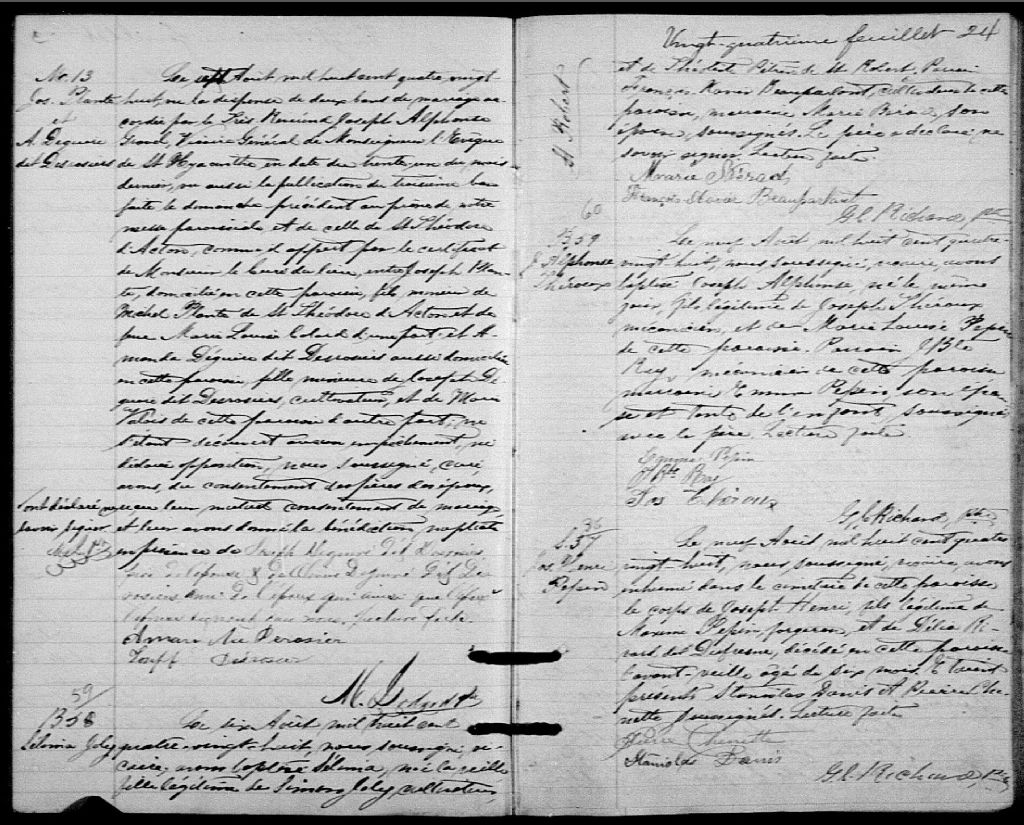 No. 13
Jos. Plante
et
A. Deguire
dit Desrosiers
Le sept Août mil huit cent quatre vingt
huit, vu la dispense de deux bans de mariage ac-
cordée par le Très Révérend Joseph Alphonse
Gravel, Vicaire Général de Monseigneur l'Evêque
de St Hyacinthe en date du trente, un du mois
dernier, vu aussi la publication du troisième ban
faite le dimanche précédent au prône de notre
messe paroissiale et de celle de St Théodore
d'Acton, comme il appert par le certificat
de Monsieur le Curé du lieu, entre Joseph Plan-
te, domicilié en cette paroisse, fils mineur de
Michel Plante de St Théodore d'Acton et de
feue Marie Louise d'une part; et A-
manda Déguire dit Desrosiers aussi domiciliée
en cette paroisse, fille mineure de Joseph Dé-
guire dit Desrosiers, cultivateur, et de Marie
Valois de cette paroisse d'autre part; ne
s'étant découvert aucun empêchement, ni
déclaré opposition, nous, soussigné, curé
avons, du consentement des pères des époux,
reçu leur mutuel consentement de mariage
et leur avons donné la bénédiction nuptiale
en présence de Joseph Deguire dit Desrosiers
père de l'épouse & de Deguire dit De-
rosiers ami de l'époux qui ainsi que
l'épouse signent avec nous. Lecture faite.
ont déclaré ne
savoir signer
Derosier
Desrosier
M. Ptre
59
B 58
Sélénia Joly
Le six Août mil huit cent
quatre-vingt-huit, nous soussigné, vi-
caire, avons baptisé Sélénia, née la veille
fille légitime de Simon Joly, cultivateur,
Vingt-quatrième feuillet 24
St Robert
et de de St Robert. Parrain
François Xavier Beauparlant, cultivateur de cette
paroisse, marraine Marie son
épouse, soussignés. Le père a déclaré ne
savoir signer. Lecture faite.
Marie
François Xavier Beauparlant
G. C. Richard, ptre
60
B 59
J. Alphonse
Théroux
Le neuf Août mil huit cent quatre-
vingt huit, nous soussigné, vicaire, avons
baptisé Joseph Alphonse, né le même
jour, fils légitime de Joseph Théroux
mécanicien, et de Marie Louise Pepin
de cette paroisse. Parrain J. Bte
Roy, mécanicien de cette paroisse
marraine Emma Pepin, son épou-
se et tante de l'enfant, soussignés
avec le père. Lecture faite
Emma Pepin
J. Bte Roy
Jos Théroux
G. C. Richard, ptre
36
S. 37
Jos. Henri
Pepin
Le neuf Août mil huit cent quatre
vingt huit, nous, soussigné, vicaire, avons
inhumé dans le cimetière de cette paroisse
le corps de Joseph Henri, fils légitime de
Maxime Pepin, forgeron, et de Délia Ri-
vard dit Dufresne, décédé en cette paroisse
l'avant-veille âgé de six mois. Etaient
présents Stanislas Danis et Pierre Che-
nette soussignés. Lecture faite
Pierre Chenette
Stanislas Danis
G. C. Richard, Ptre